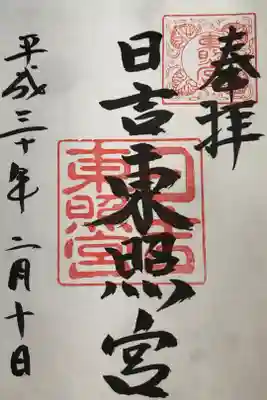 奉拝
日吉東照宮
平成三十年二月十日
日吉
東照宮